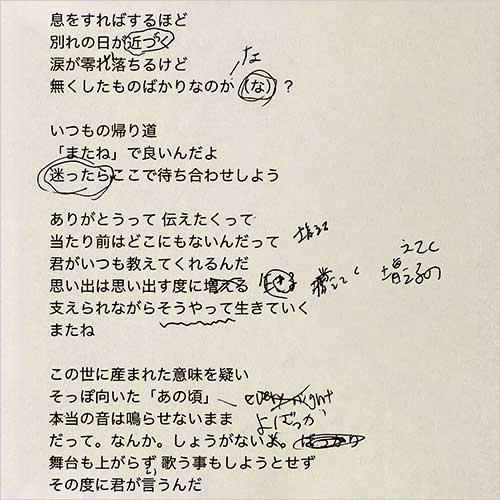 息をすればするほど
別れの日が近づく
涙が零れ落ちるけど
な
無くしたものばかりなのか(な)？
いつもの帰り道
「またね」で良いんだよ
迷ったらここで待ち合わせしよう
ありがとうって 伝えたくって
当たり前はどこにもないんだって
君がいつも教えてくれるんだ
思い出は思い出す度に増える
えてく
増えるの
支えられながらそうやって生きていく
またね
この世に産まれた意味を疑い
そっぽ向いた「あの頃」
every night
本当の音は鳴らせないまま
だって。なんか。しょうがないよ。
舞台も上がらず 歌う事もしようとせず
い
その度に君が言うんだ